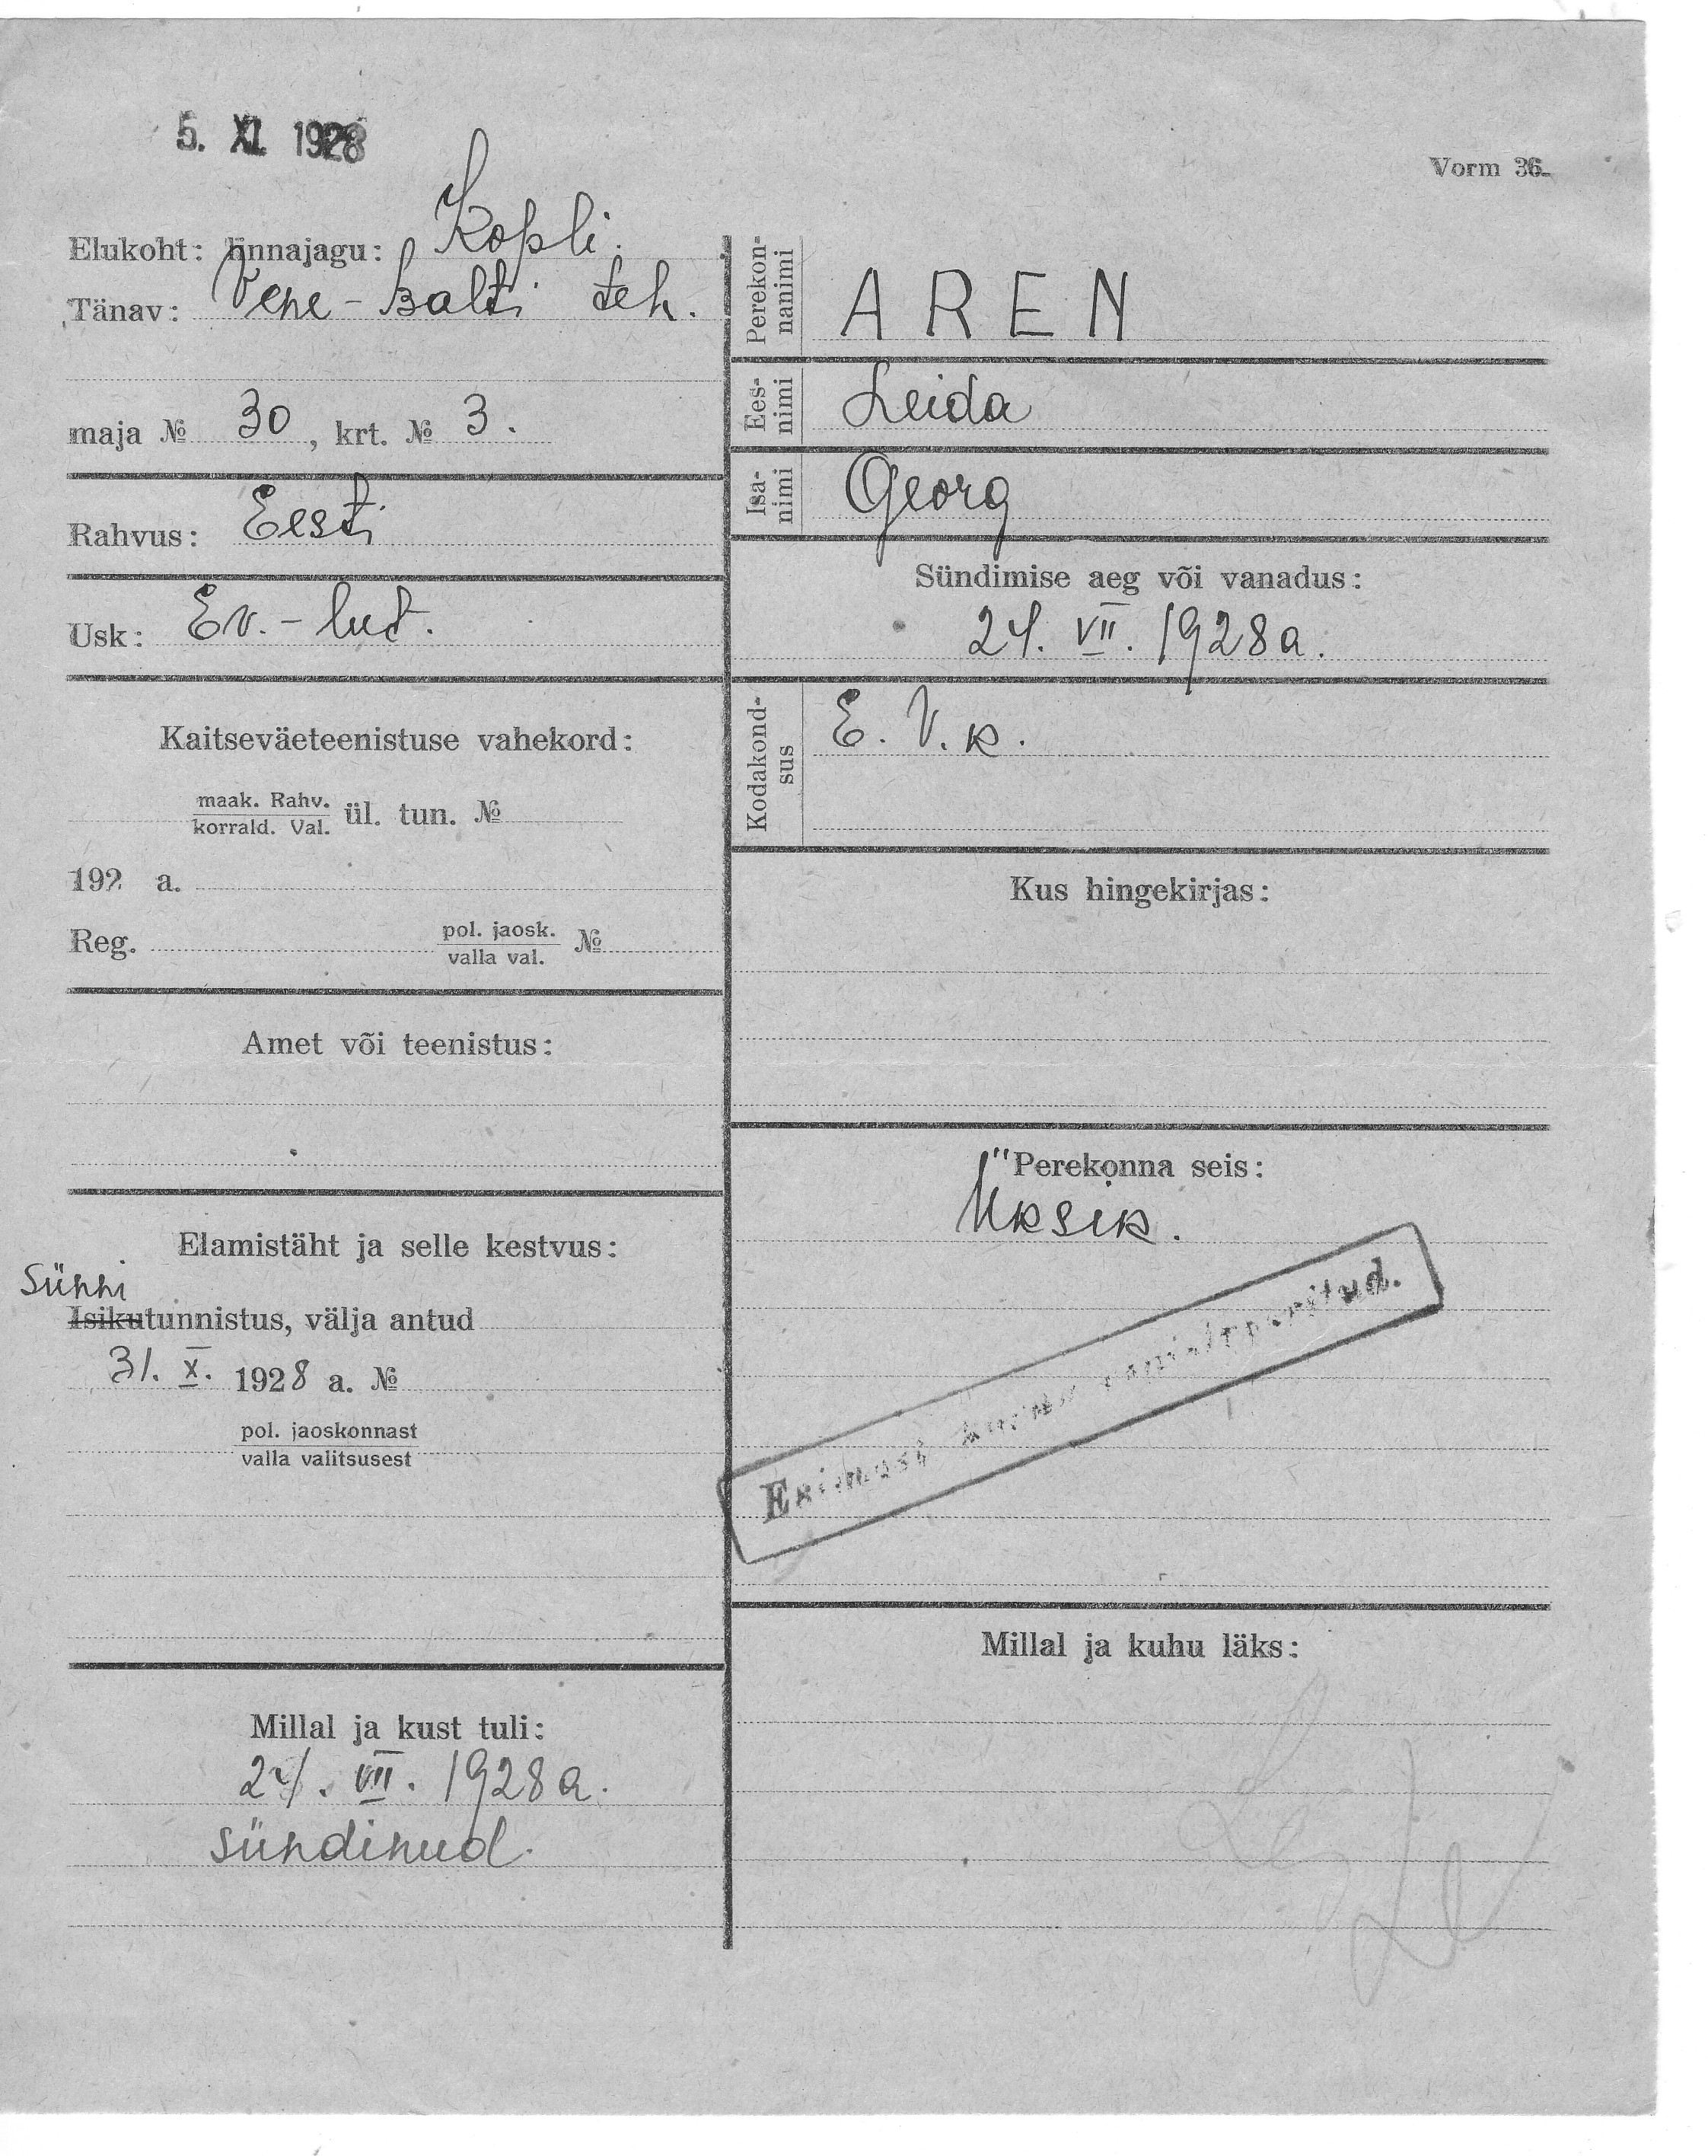 5. XI. 1928
Vorm 36.
Elukoht: linnajagu: Kopli.
Tänav: Vene-Balti teh.
maja № 30, krt. № 3.
Rahvus: Eesti
Usk: Ev.-lut.
Kaitseväeteenistuse vahekord:
maak. Rahv.
korrald. Val. ül. tun. №
192 a.
Reg. pol. jaosk.
valla val. №
Amet või teenistus:
Elamistäht ja selle kestvus:
Sünni
Isikutunnistus, välja antud
31. X. 1928 a. №
pol. jaoskonnast
valla valitsusest
Millal ja kust tuli:
24. VII. 1928 a.
sündinud.
Perekon-
nanimi
AREN
Ees-
nimi
Leida
Isa-
nimi
Georg
Sündimise aeg või vanadus:
24. VII. 1928 a.
Kodakond-
sus
E. V. k.
Kus hingekirjas:
Perekonna seis:
Üksik.
Esimest
Millal ja kuhu läks: